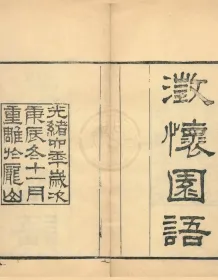 澂懷園語
光緒六年歲次
庚辰冬十一月
重雕於龍山